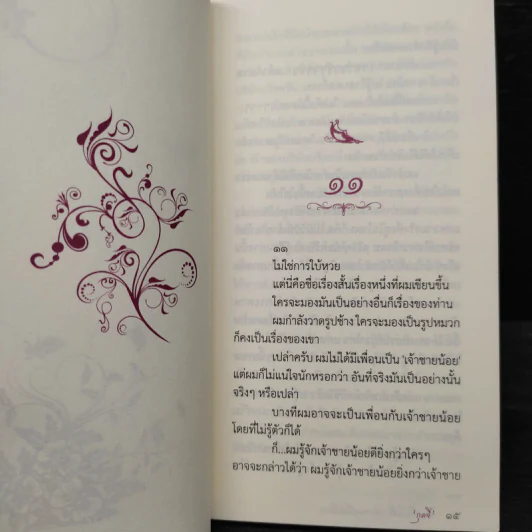 ๑๑
๑๑
ไม่ใช่การใบ้หวย
แต่นี่คือชื่อเรื่องสั้นเรื่องหนึ่งที่ผมเขียนขึ้น
ใครจะมองมันเป็นอย่างอื่นก็เรื่องของท่าน
ผมกำลังวาดรูปช้าง ใครจะมองเป็นรูปหมวก
ก็คงเป็นเรื่องของเขา
เปล่าครับ ผมไม่ได้มีเพื่อนเป็น 'เจ้าชายน้อย'
แต่ผมก็ไม่แน่ใจนักหรอกว่า อันที่จริงมันเป็นอย่างนั้น
จริงๆ หรือเปล่า
บางทีผมอาจจะเป็นเพื่อนกับเจ้าชายน้อย
โดยที่ไม่รู้ตัวก็ได้
ก็...ผมรู้จักเจ้าชายน้อยดียิ่งกว่าใครๆ
อาจจะกล่าวได้ว่า ผมรู้จักเจ้าชายน้อยยิ่งกว่าเจ้าชาย
๑๕